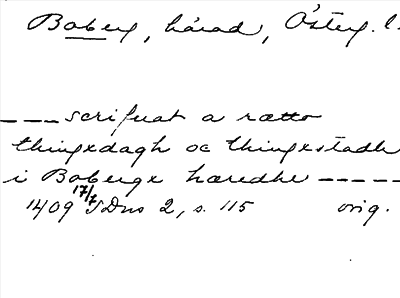 Boberg, härad, Österg. l.
--- scrifuat a rætto
thingxdagh oc thingxstadh
i Boberge hæredhe -----
1409 17/7 SDns 2, s. 115 orig.